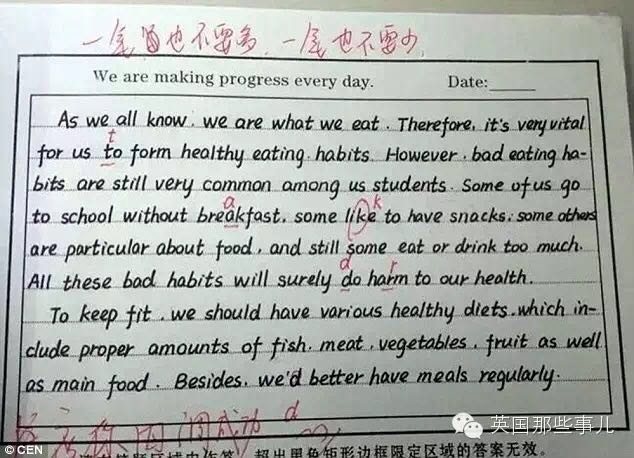 一尾 也不要多、一尾也不要少
We are making progress every day. Date:
As we all know, we are what we eat. Therefore, it's very vital
t
for us to form healthy eating habits. However, bad eating ha-
bits are still very common among us students. Some of us go
a k
to school without breakfast, some like to have snacks; some others
are particular about food, and still some eat or drink too much.
d r
All these bad habits will surely do harm to our health.
To keep fit, we should have various healthy diets, which in-
clude proper amounts of fish, meat, vegetables, fruit as well
as main food. Besides, we'd better have meals regularly.
成功 d
超出黑色矩形边框限定区域的答案无效。
英国那些事儿
© CEN